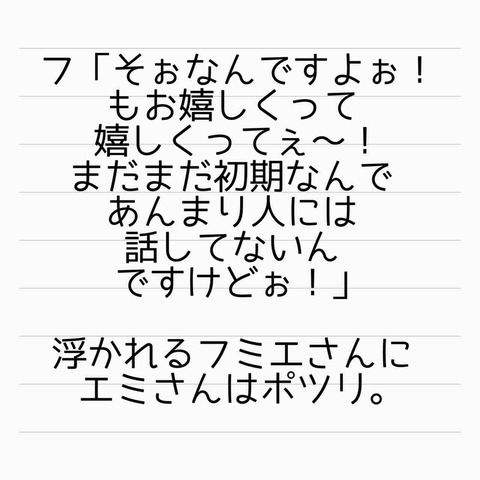 フ「そぉなんですよぉ！
もお嬉しくって
嬉しくってぇ〜！
まだまだ初期なんで
あんまり人には
話してないん
ですけどぉ！」
浮かれるフミエさんに
エミさんはポツリ。